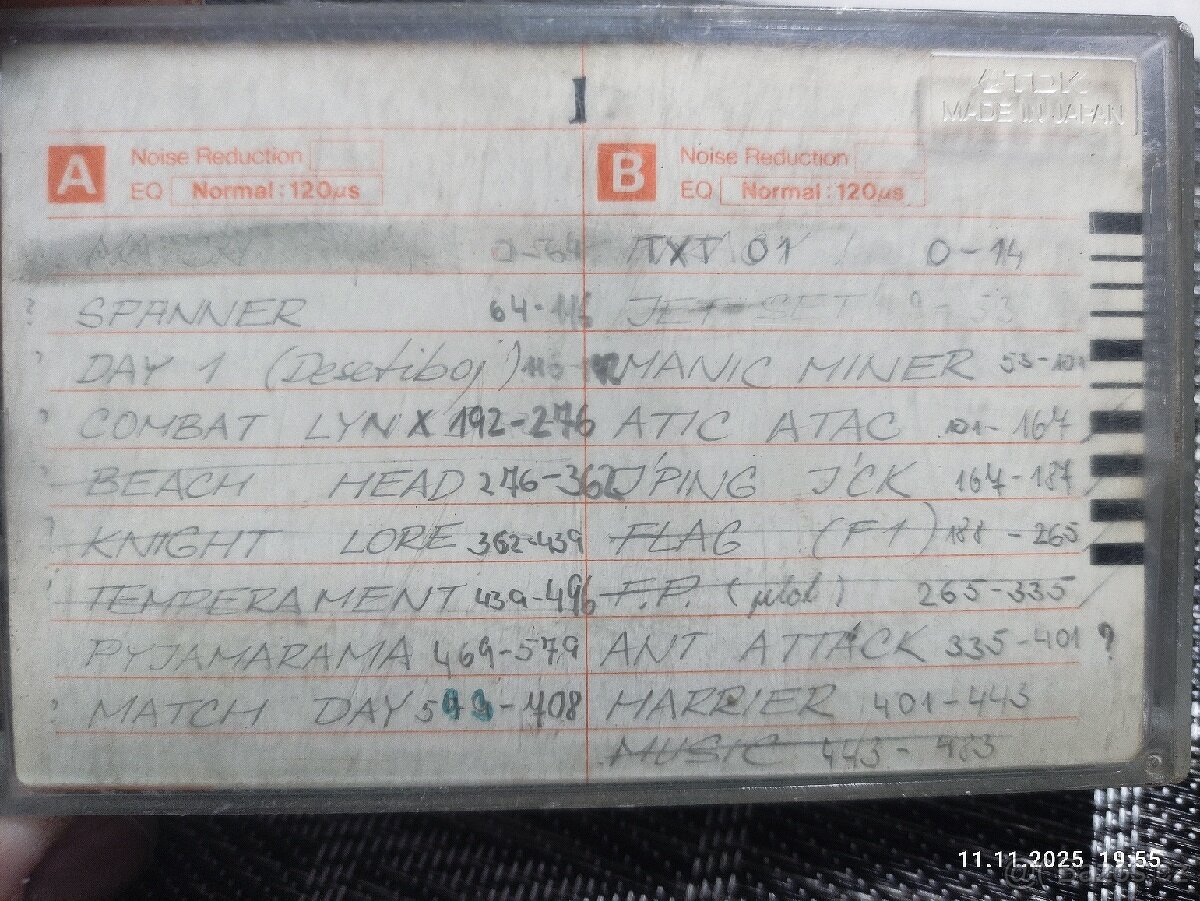 I
TDK
MADE IN JAPAN
A Noise Reduction
EQ Normal : 120µs
B Noise Reduction
EQ Normal : 120µs
0-64
? SPANNER 64-116
? DAY 1 (Desetiboj)
? COMBAT LYNX 192-276
BEACH HEAD 276-362
? KNIGHT LORE 362-439
TEMPERAMENT 439-496
PYJAMARAMA 469-579
? MATCH DAY
TXT 01 0-14
JET SET
MANIC MINER 53-101
ATIC ATAC 101-167
J'PING J'CK 167-187
FLAG (F1) 188-265
F.P. (pilot) 265-335
ANT ATTACK 335-401 ?
HARRIER 401-443
MUSIC 443-483
11.11.2025 19:55